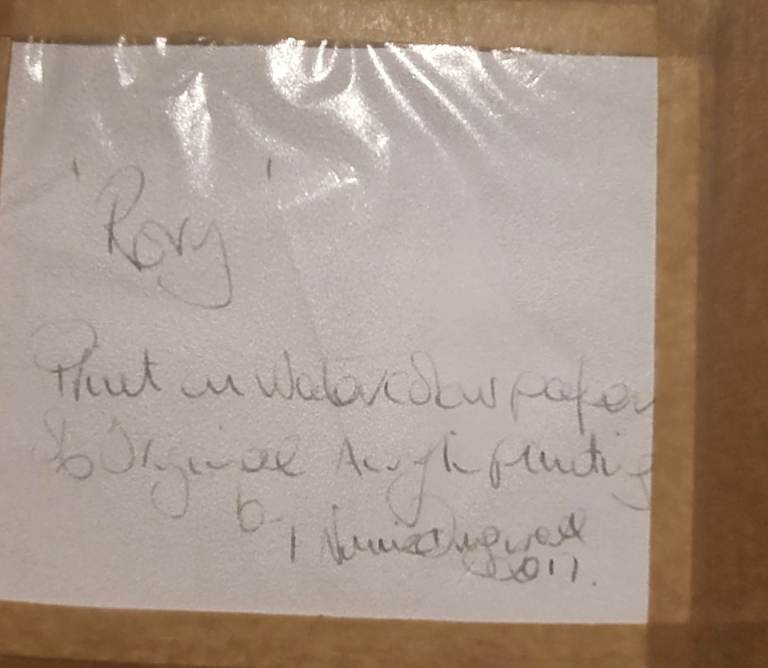 'Rory'
Print on Watercolour paper
of Original Acrylic painting
by
2011.